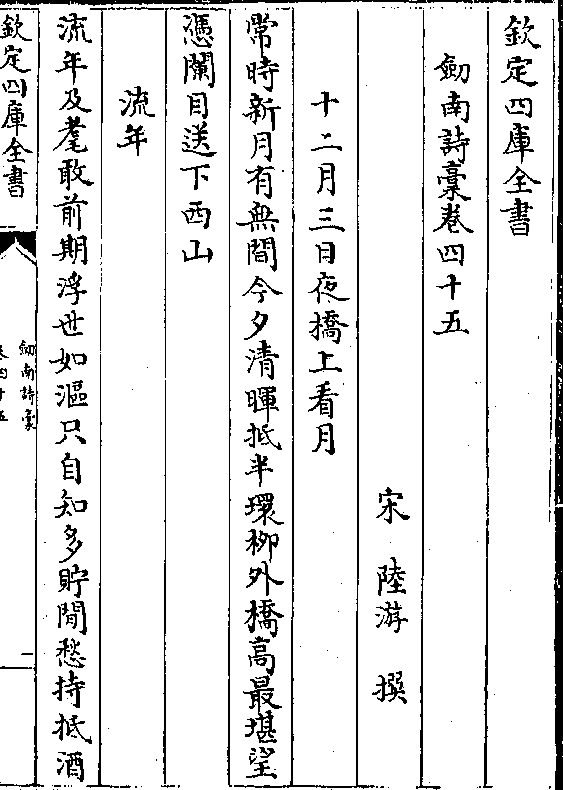 欽定四庫全書
劒南詩稾卷四十五
宋 陸游 撰
十二月三日夜橋上看月
常時新月有無間今夕清暉抵半環栁外橋高最堪望
憑闌目送下西山
流年
流年及耄敢前期浮世如漚只自知多貯閒愁持抵酒
欽定四庫全書
劒南詩稾
卷四十五
一